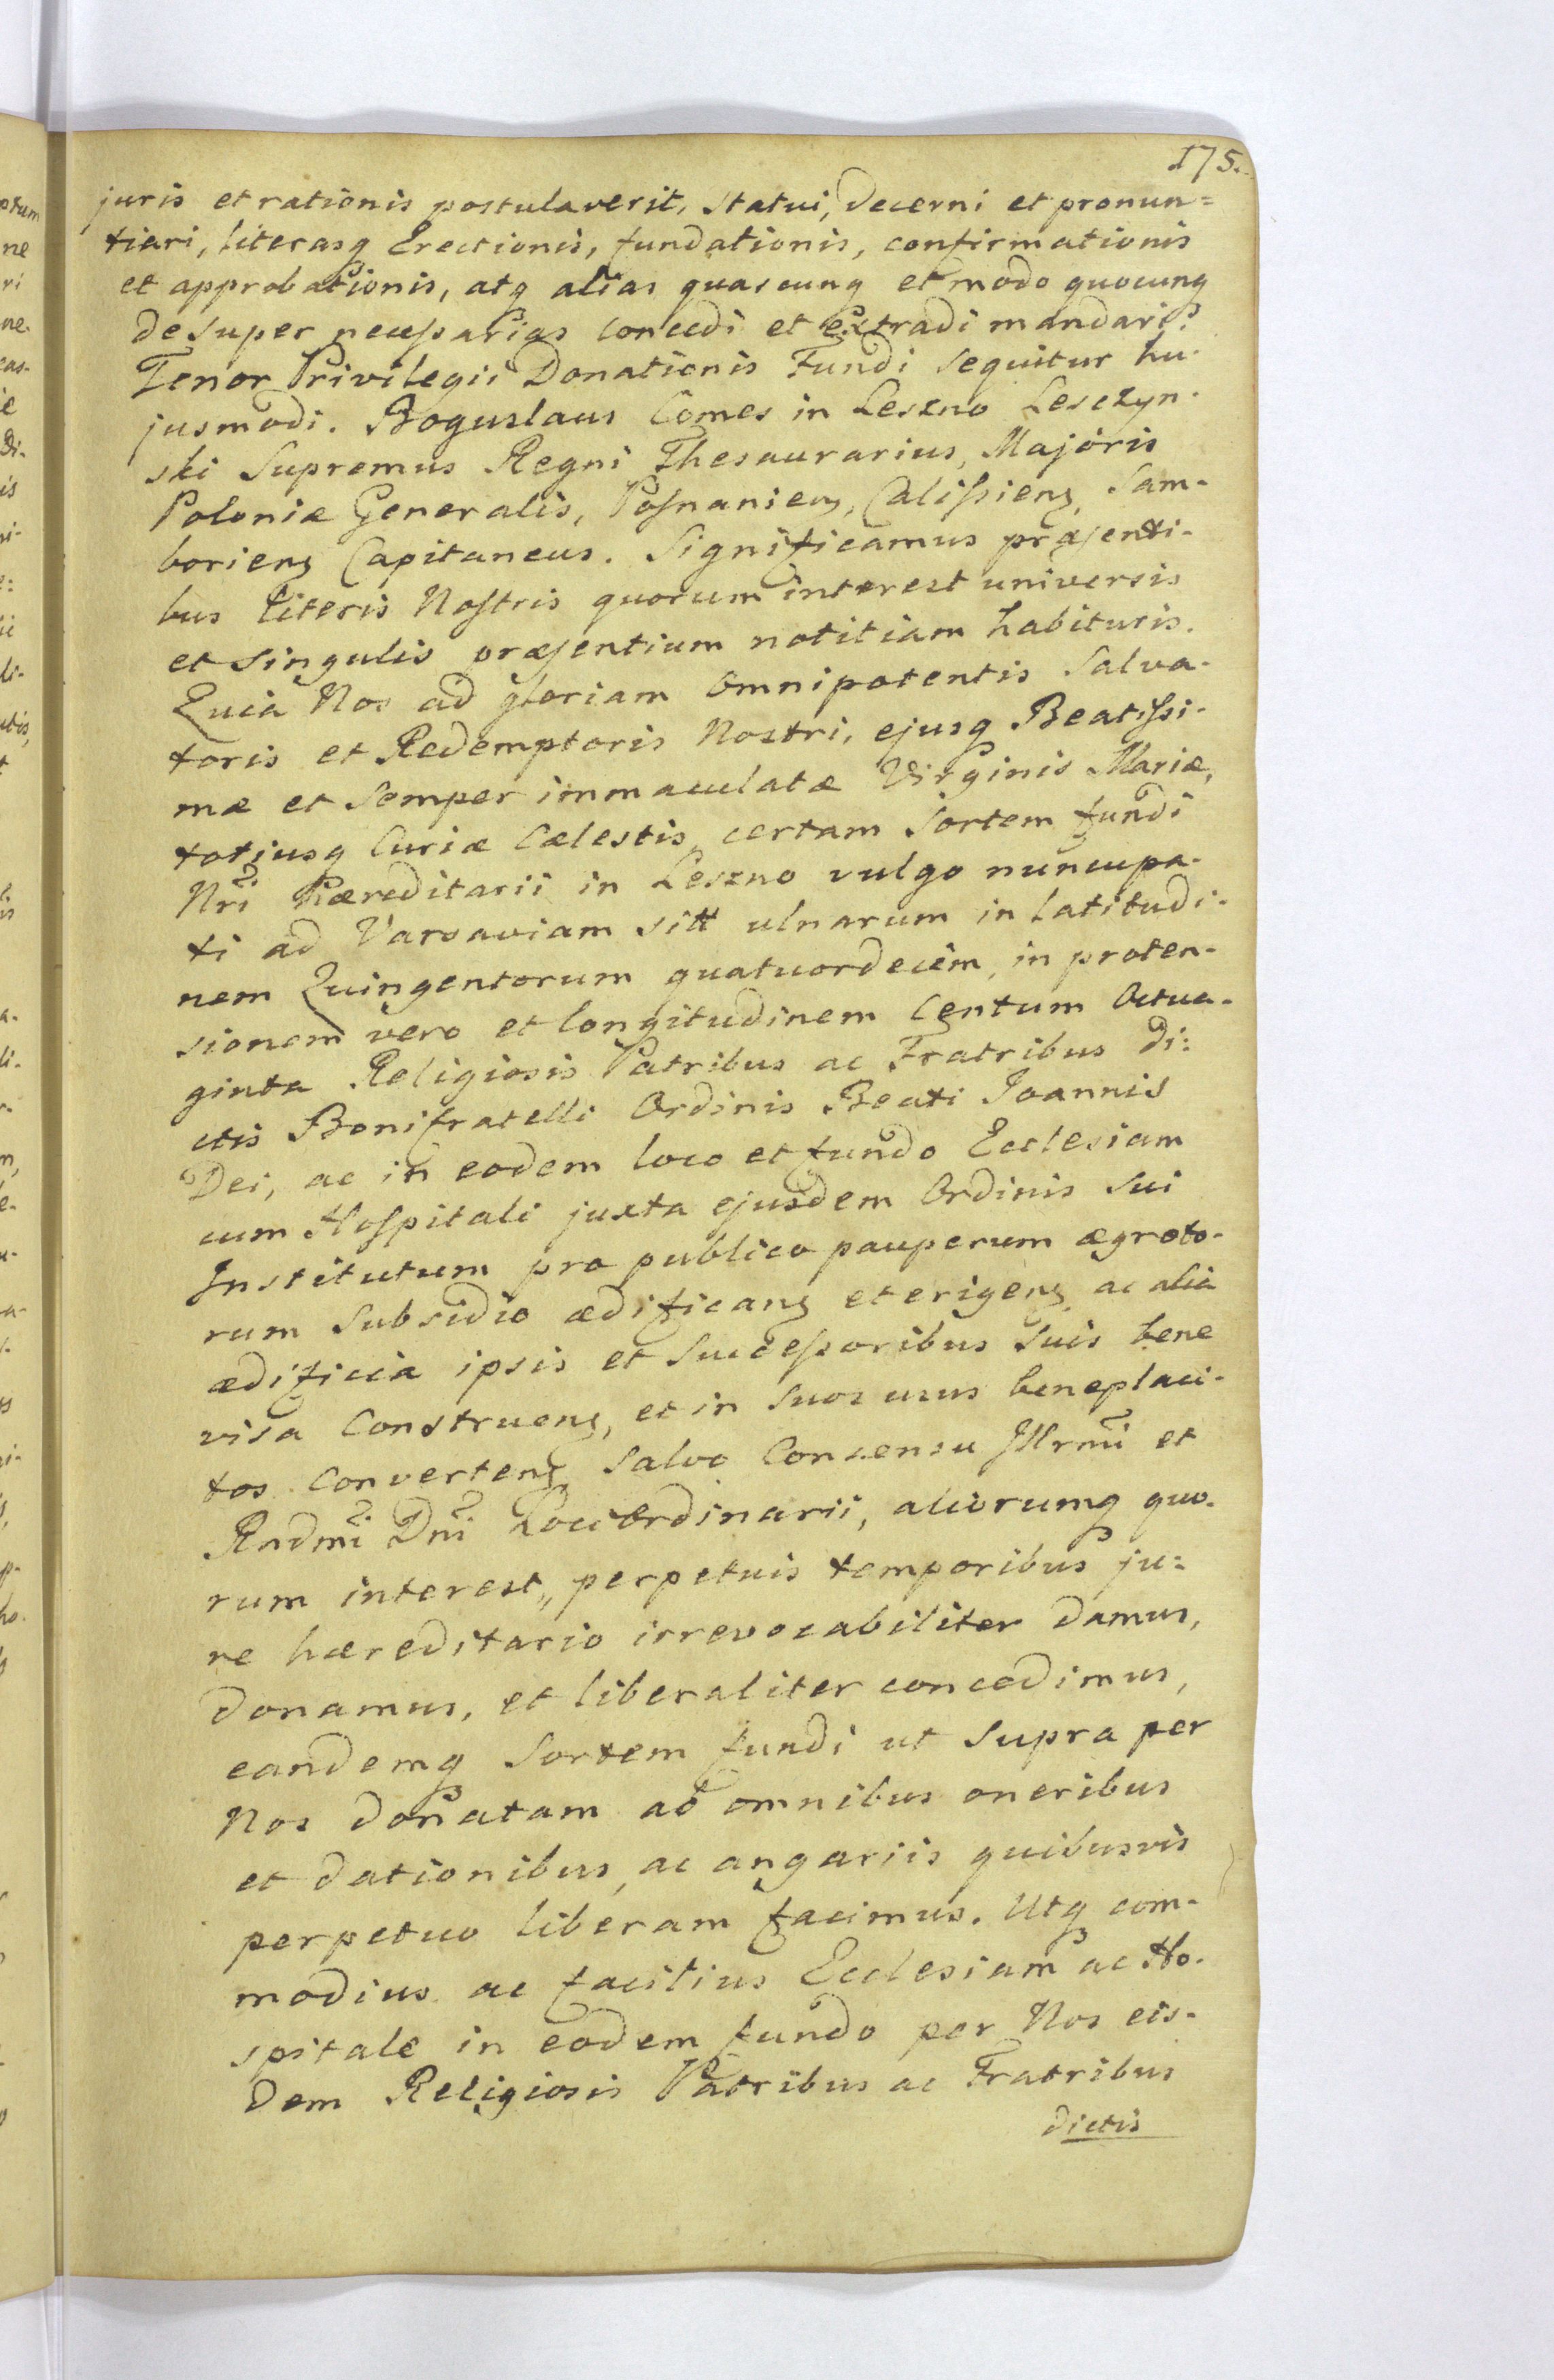 175.
juris et rationis postulaverit, statui, decerni et pronun=
tiari, literasq Erectionis, fundationis, confirmationis
et approbationis, atq alias quascunq et modo quocunq
desuper necessarias concedi et extradi mandari.
Tenor Privilegii Donationis Fundi sequitur hu-
jusmodi. Boguslaus Comes in Leszno Lesczyn-
ski Supremus Regni Thesaurarius, Majoris
Poloniæ Generalis, Posnaniens, Calissiens, Sam-
boriens Capitaneus. Significamus præsenti-
bus literis Nostris quorum interest universis
et singulis præsentium notitiam habituris.
Quia Nos ad gloriam Omnipotentis Salva-
toris et Redemptoris Nostri, ejusq Beatissi-
mæ et semper immaculatæ Virginis Mariæ,
totiusq Curiæ Cælestis, certam Sortem fundi
Nri Hæreditarii in Leszno vulgo nuncupa-
ti ad Varsaviam sitt ulnarum in latitudi-
nem Quingentorum quatuordecim, in proten-
sionem vero et longitudinem Centum Octua-
ginta Religiosis Patribus ac Fratribus di:
ctis Bonifratelli Ordinis Beati Joannis
Dei, ac in eodem loco et fundo Ecclesiam
cum Hospitali juxta ejusdem Ordinis sui
Institutum pro publico pauperum ægroto-
rum subsidio ædificans et erigens ac alia
ædificia ipsis et Successoribus suis bene
visa Construens, et in suos usus beneplaci-
tos Convertens, Salvo Consensu Illrmi et
Rndmi Dni Loci Ordinarii, aliorumq quo-
rum interest, perpetuis temporibus ju:
re hæreditario irrevocabiliter damus,
donamus, et liberaliter concedimus,
eandemq Sortem fundi ut supra per
Nos donatam ab omnibus oneribus
et dationibus, ac angariis quibusvis
perpetuo liberam facimus. Utq com-
modius ac facilius Ecclesiam ac Ho-
spitale in eodem fundo per Nos eis-
dem Religiosis Patribus ac Fratribus
dictis